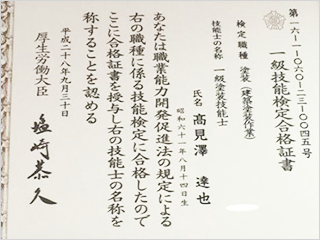 第一六-一-〇六〇-二三-〇〇四五号
一級技能検定合格証書
検定職種 塗装(建築塗装作業)
技能士の名称 一級塗装技能士
氏名 髙見澤 達也
昭和六十一年八月十四日生
あなたは職業能力開発促進法の規定による
右の職種に係る技能検定に合格したので
ここに合格証書を授与し右の技能士の名称を
称することを認める
平成二十八年九月三十日
厚生労働大臣 塩崎恭久